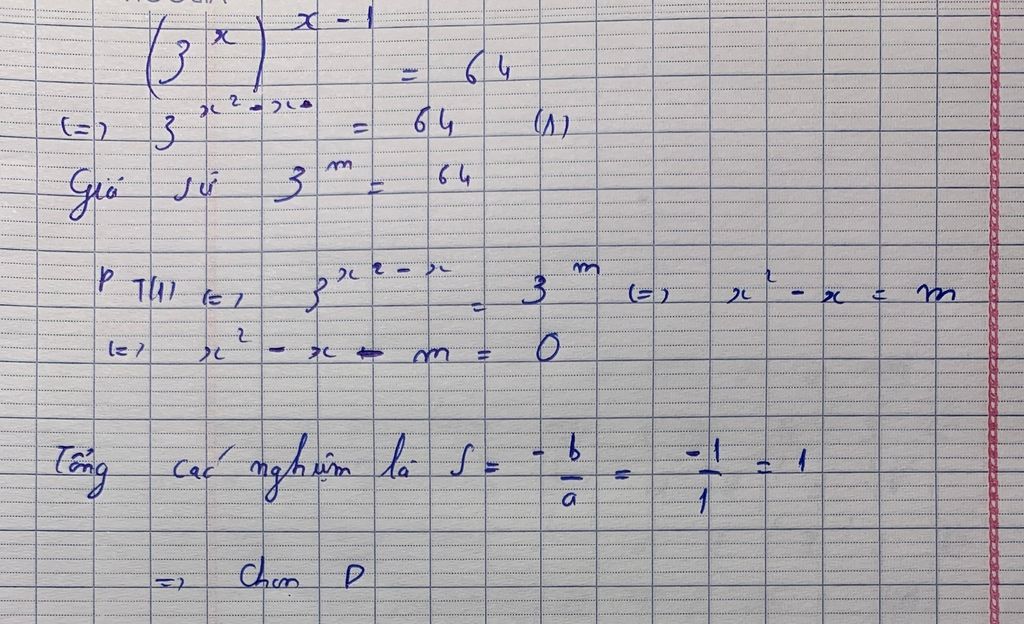 (3^x)^{x - 1} = 64
<=> 3^{x² - x} = 64 (1)
Giả sử 3^m = 64
PT(1) <=> 3^{x² - x} = 3^m <=> x² - x = m
<=> x² - x - m = 0
Tổng các nghiệm là S = -b/a = -1/1 = 1
=> Chọn D